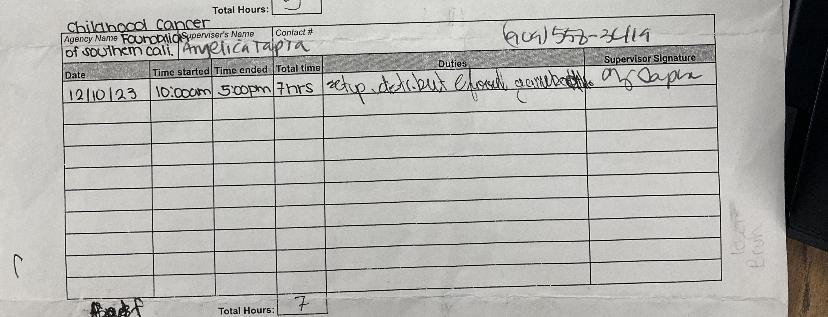 Total Hours:
Childhood Cancer
Agency Name Foundation Supervisor's Name Contact #
of southern cali. Angelica Tapia (909) 558-3419
Date Time started Time ended Total time Duties Supervisor Signature
12/10/23 10:00am 5:00pm 7hrs setup, distribut food, game booth
Total Hours: 7